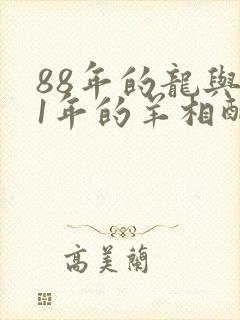 88年的龍與
1年的羊相酉
高美蘭